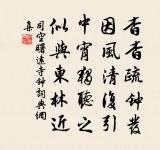 杳杳疏钟发
因风清复引
中宵独听之
似与东林近
司空曙远寺钟词典网
集